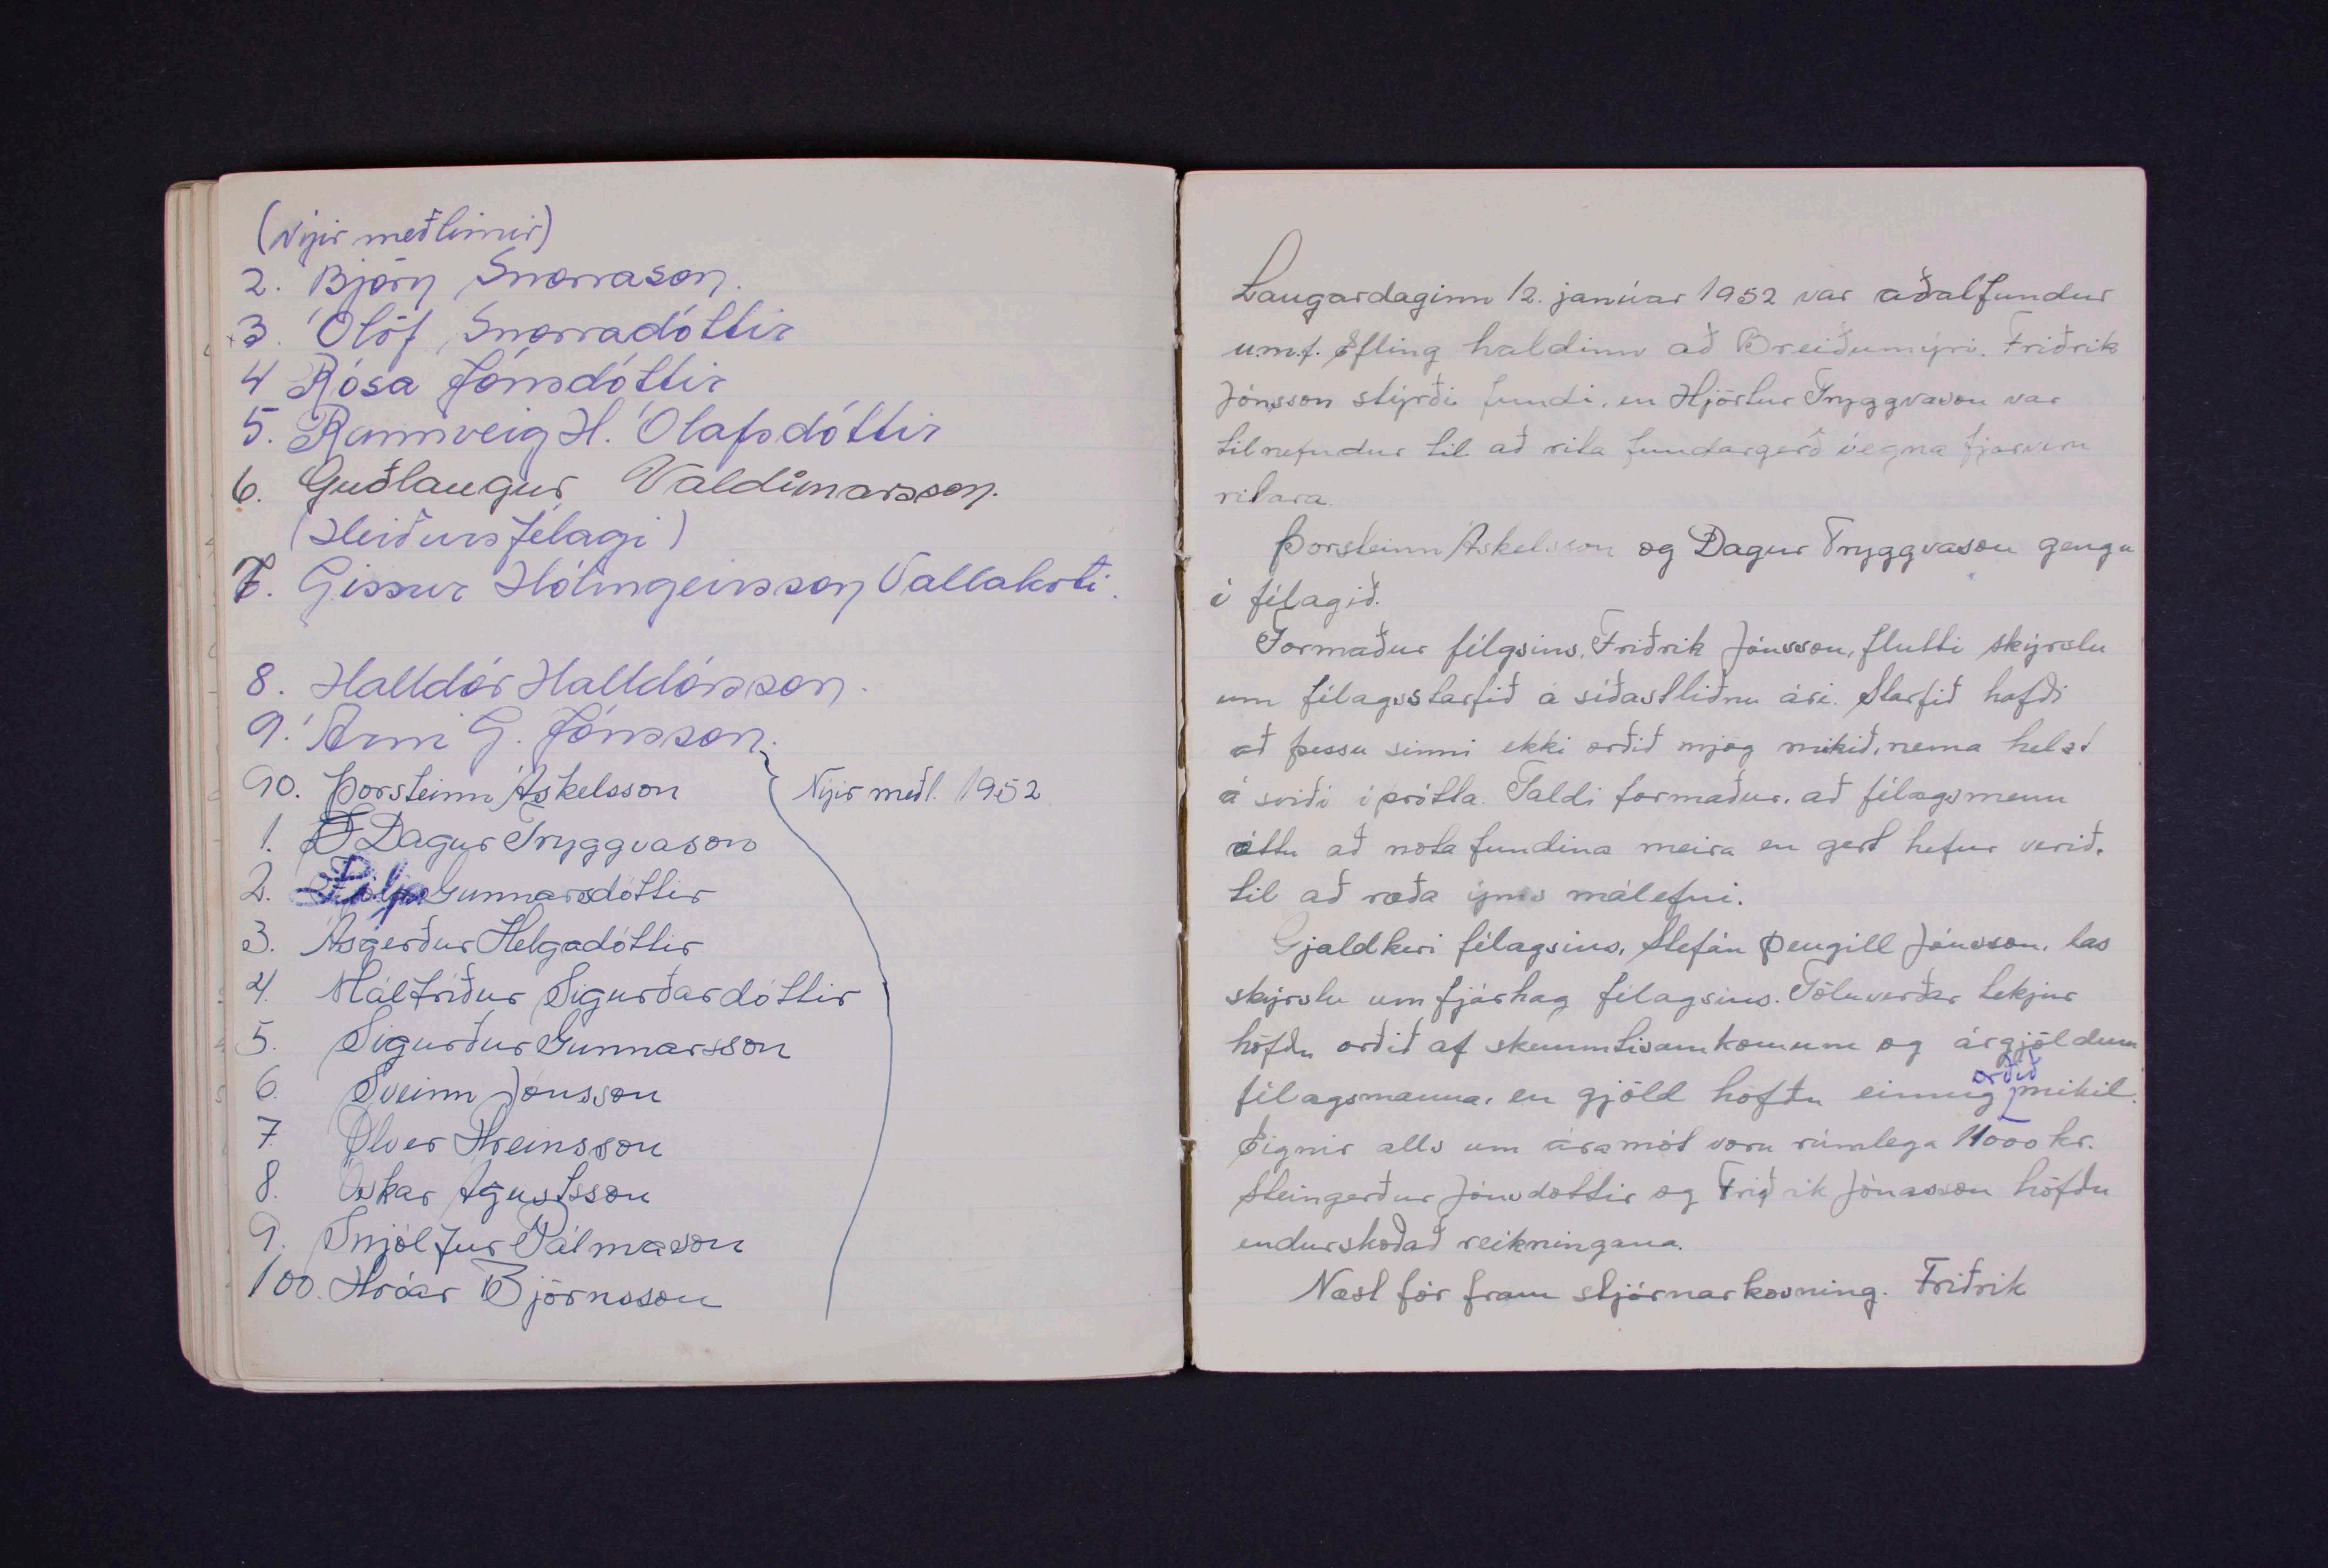 (Nýir meðlimir)
2. Björn Snorrason.
3. Ólöf Snorradóttir
4 Rósa Jónsdóttir
5. Rannveig H. Ólafsdóttir
6. Guðlaugur Valdimarsson.
(Heiðursfélagi)
7. Gissur Hólmgeirsson Vallakoti.
8. Halldór Halldórsson.
9. Árni G. Jónsson.
90. Þorsteinn Áskelsson Nýir meðl. 1952
1. Dagur Tryggvason
2. Gunnarsdóttir
3. Ásgerður Helgadóttir
4. Málfríður Sigurðardóttir
5. Sigurður Gunnarsson
6. Sveinn Jónsson
7 Ölver Hreinsson
8. Óskar Ágústsson
9. Snjólfur Pálmason
100. Hróar Björnsson
Laugardaginn 12. janúar 1952 var aðalfundur
u.m.f. Efling haldinn að Breiðumýri. Friðrik
Jónsson stýrði fundi, en Hjörtur Tryggvason var
tilnefndur til að rita fundargerð vegna fjarveru
ritara.
Þorsteinn Áskelsson og Dagur Tryggvason gengu
í félagið.
Formaður félgsins, Friðrik Jónsson, flutti skýrslu
um félagsstarfið á síðastliðnu ári. Starfið hafði
að þessu sinni ekki orðið mjög mikið, nema helst
á sviði íþrótta. Taldi formaður, að félagsmenn
ættu að nota fundina meira en gert hefur verið,
til að ræða ýms málefni.
Gjaldkeri félagsins, Stefán Þengill Jónsson, las
skýrslu um fjárhag félagsins. Töluverðar tekjur
höfðu orðið af skemmtisamkomum og árgjöldum
félagsmanna, en gjöld höfðu einnig orðið mikil.
Eignir alls um áramót voru rúmlega 11000 kr.
Steingerður Jónsdóttir og Friðrik Jónasson höfðu
endurskoðað reikningana.
Næst fór fram stjórnarkosning. Friðrik